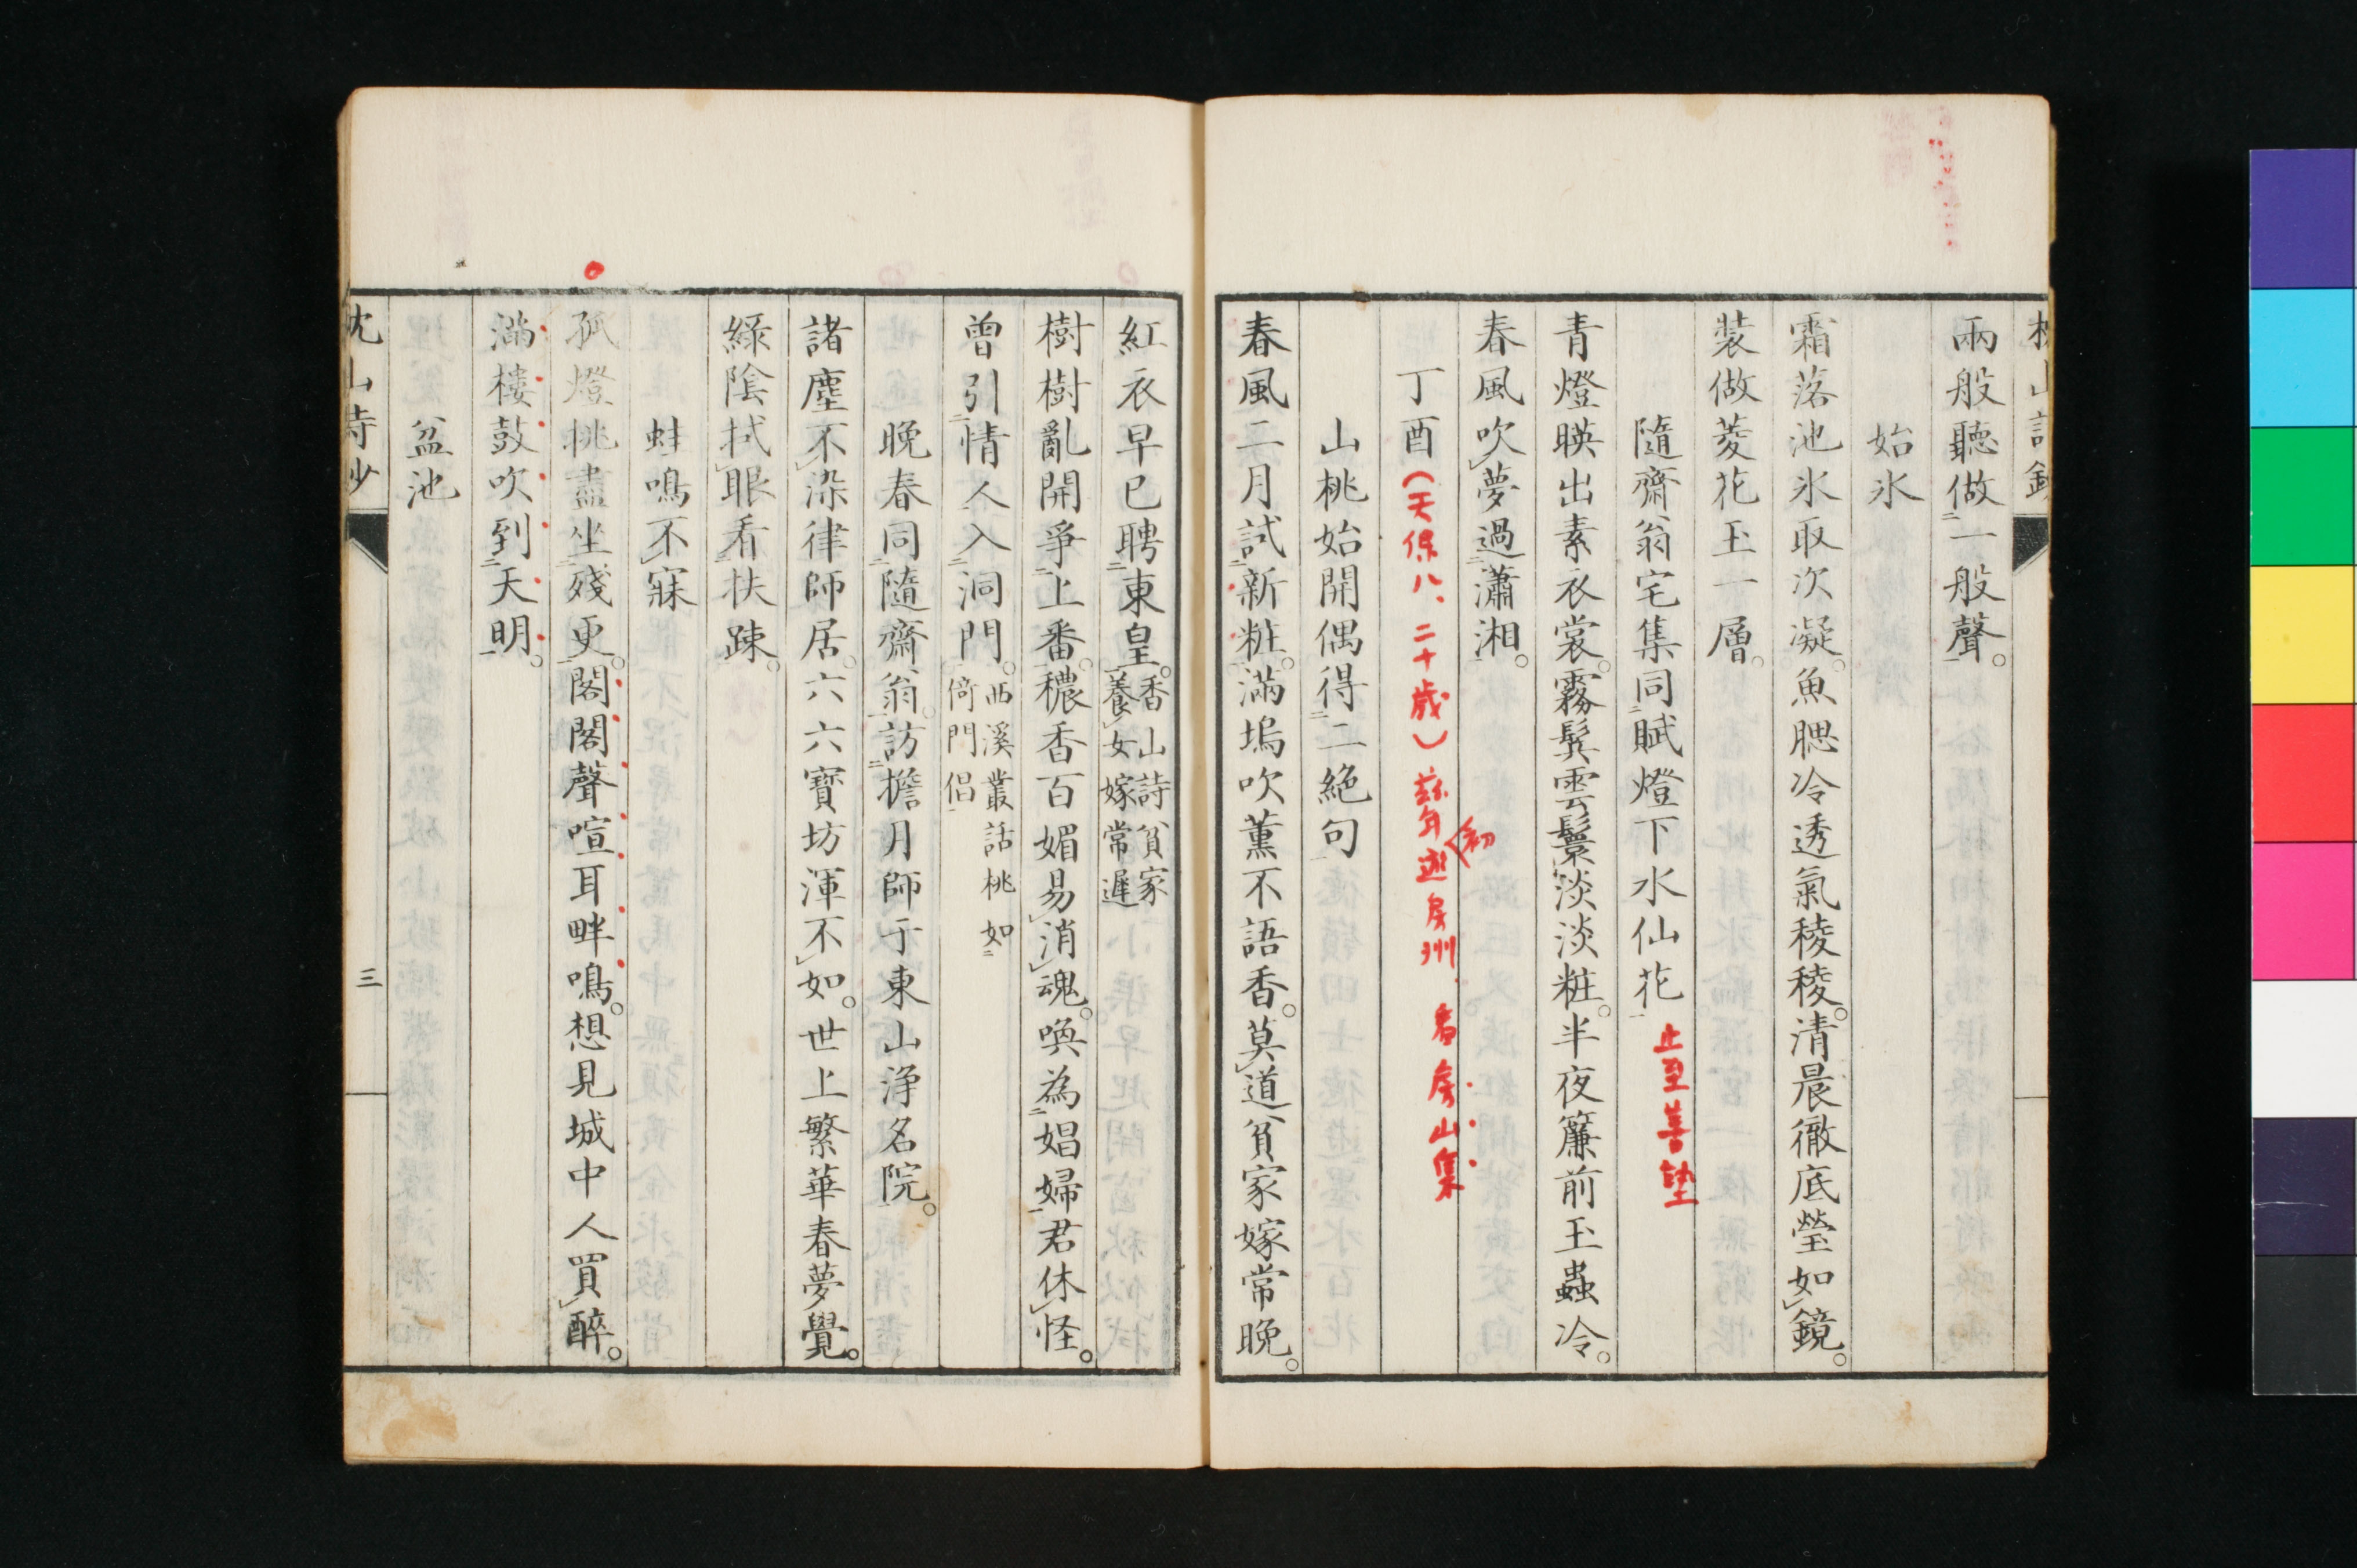 兩般聽做一般聲。
始氷
霜落池氷取次凝。魚腮冷透氣稜稜。清晨徹底瑩如鏡。
裝做菱花玉一層。
隨齋翁宅集同賦燈下水仙花
止至善塾
青燈暎出素衣裳。霧鬂雲鬟淡淡粧。半夜簾前玉蟲冷。
春風吹夢過瀟湘。
丁酉
(天保八、二十歳)茲年初遊房州、著房山集
山桃始開偶得二絶句
春風二月試新粧。滿塢吹薰不語香。莫道貧家嫁常晚。
紅衣早已聘東皇。
香山詩貧家
養女嫁常遲
樹樹亂開爭上番。穠香百媚易消魂。喚為娼婦君休怪。
曾引情人入洞門。
西溪叢話桃如
倚門倡
晚春同隨齋翁。訪擔月師于東山浄名院。
諸塵不染律師居。六六寶坊渾不如。世上繁華春夢覺。
綠陰拭眼看扶踈。
蛙鳴不寐
孤燈挑盡坐殘更。閣閣聲喧耳畔鳴。想見城中人買醉。
滿樓鼓吹到天明。
盆池
三